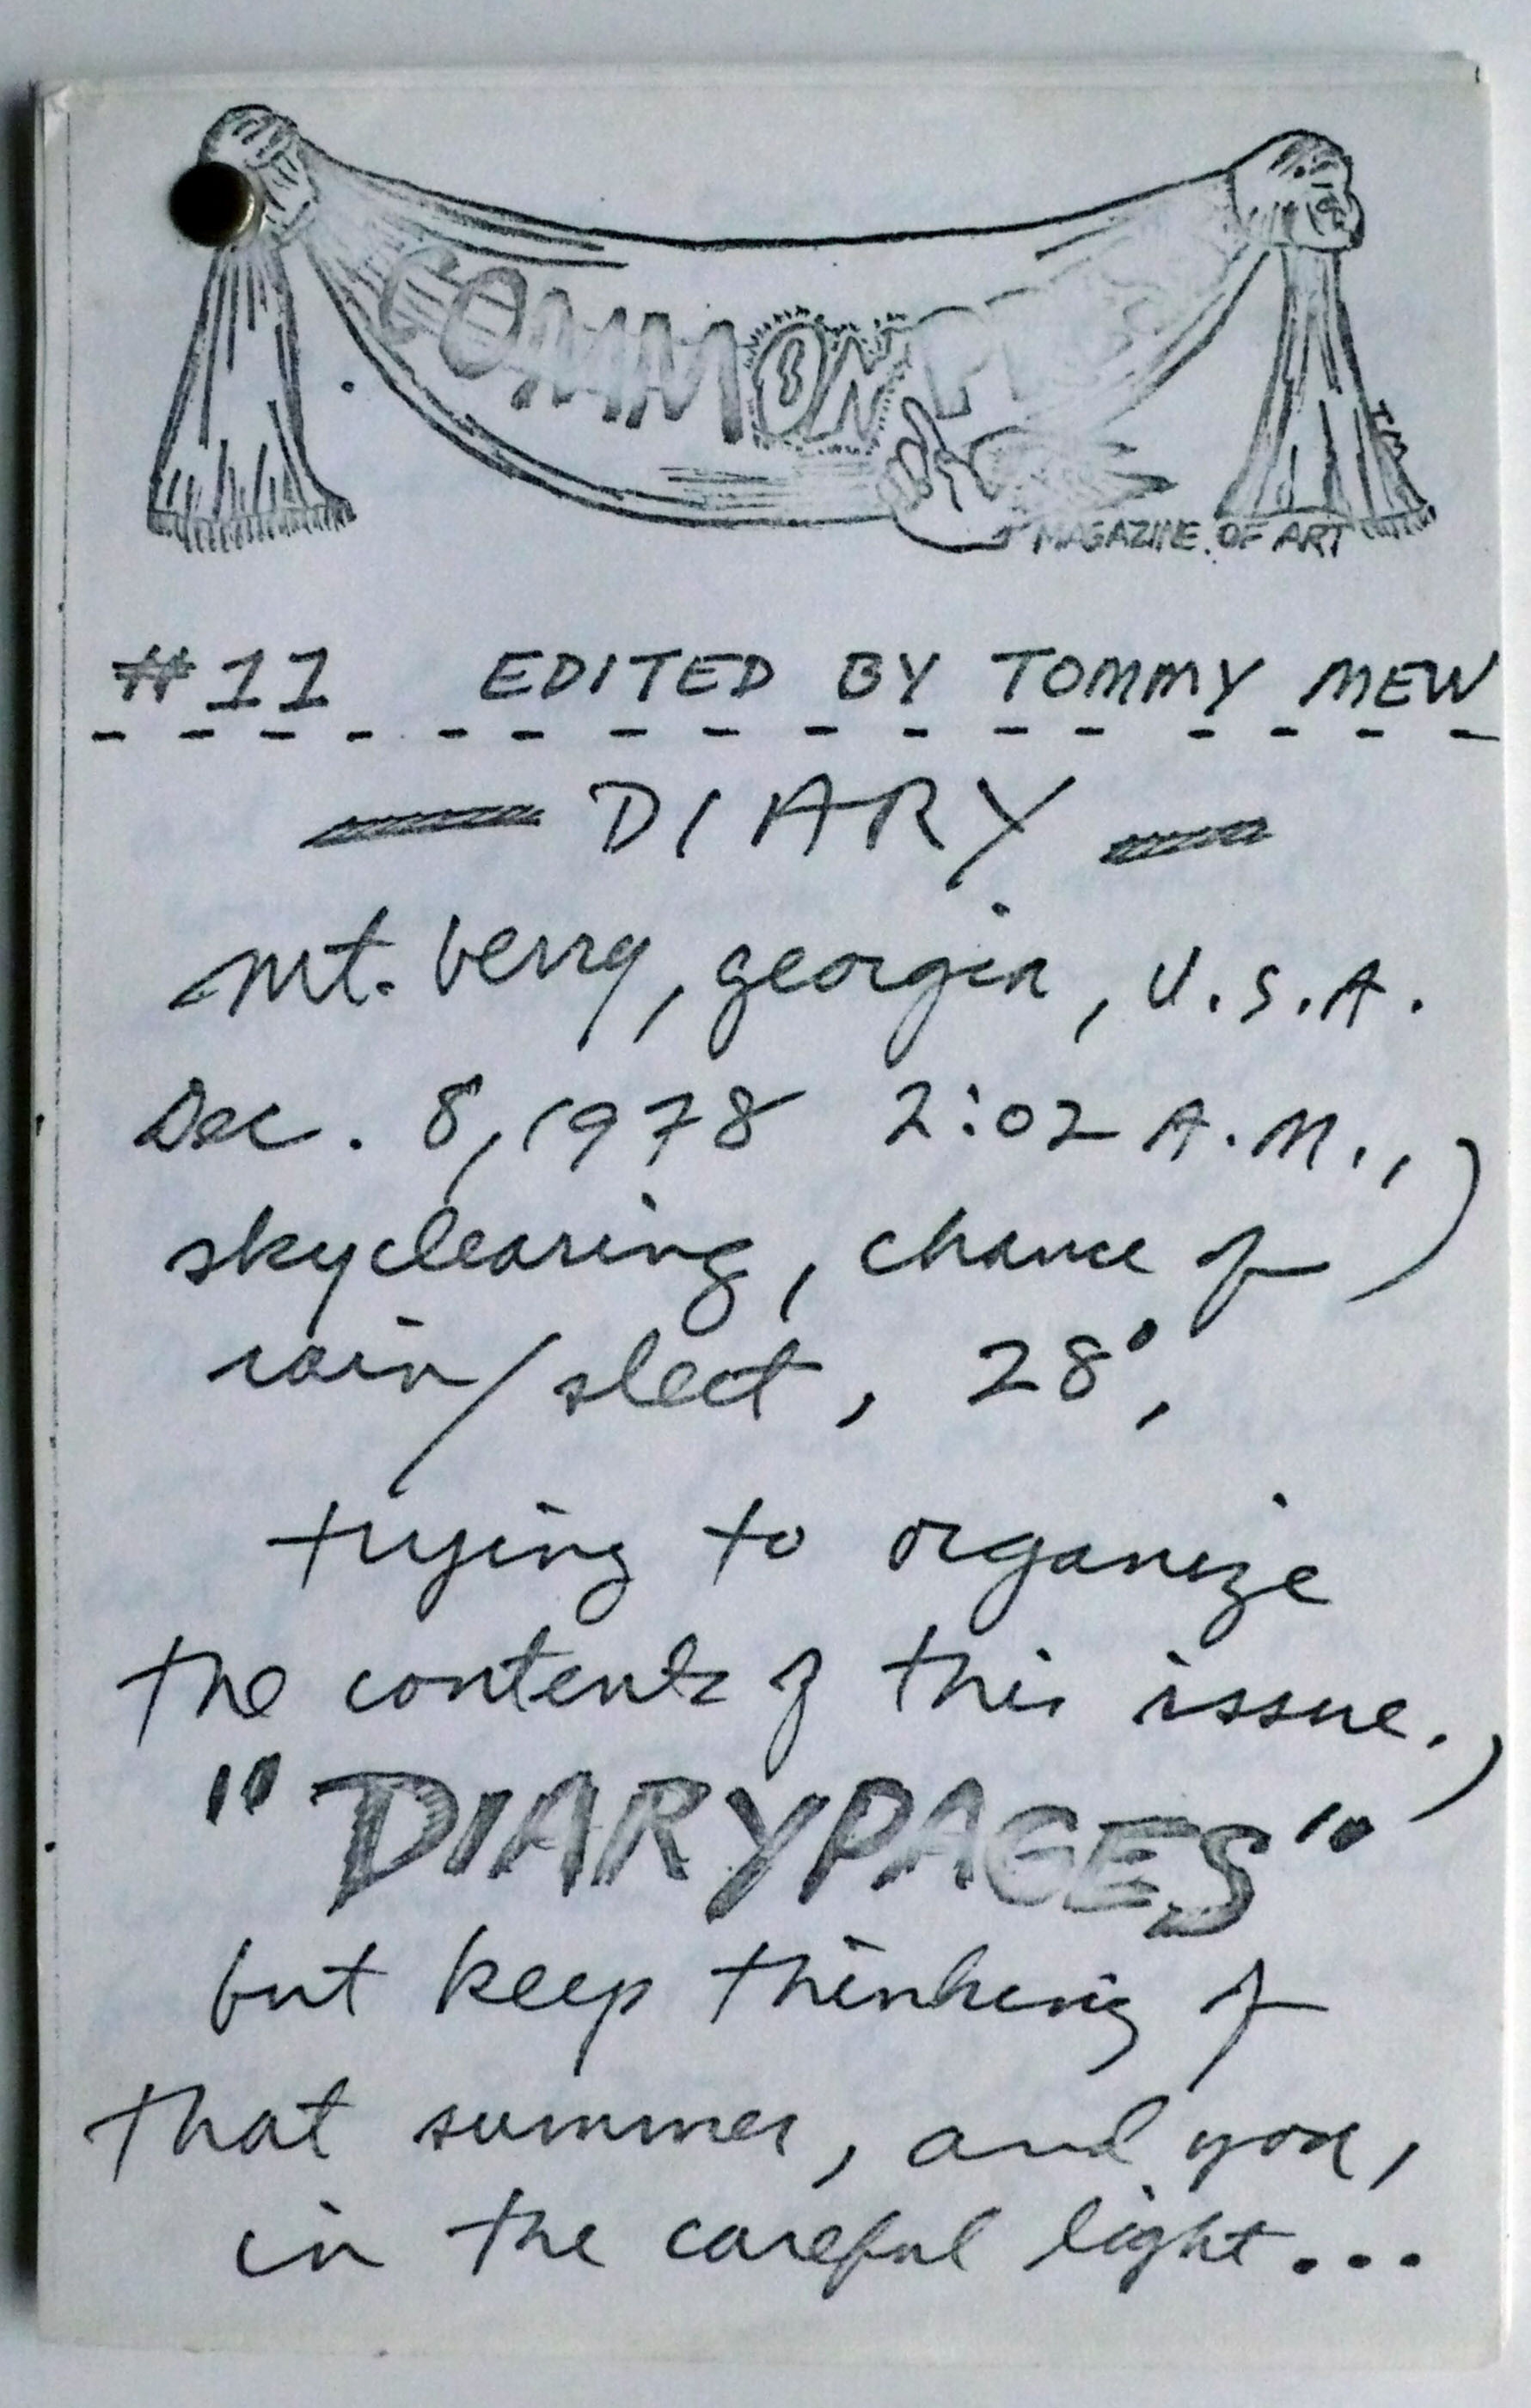 COMMON
MAGAZINE OF ART
TM
#11 EDITED BY TOMMY MEW
DIARY
Mt. berry, georgia, U.S.A.
Dec. 8, 1978 2:02 A.M.,
skyclearing, chance of
rain/sleet, 28°,
trying to organize
the contents of this issue.
"DIARYPAGES"
but keep thinking of
that summer, and you,
in the careful light...